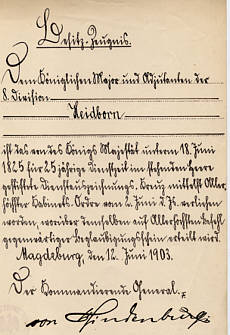 Besitz-Zeugnis.
Dem Königlichen Major und Adjutanten der
8. Division
Heidborn
ist das von des Königs Majestät unterm 18. Juni
1825 für 25 jährige Dienstzeit im stehenden Heer
gestiftete Dienstauszeichnungs-Kreuz mittelst Aller-
höchster Kabinets-Ordre vom 2. Juni d. Js. verliehen
worden, worüber demselben auf Allerhöchsten Befehl
gegenwärtiger Beglaubigungsschein erteilt wird.
Magdeburg, den 12. Juni 1903.
Der Kommandierende General.
von Hindenburg